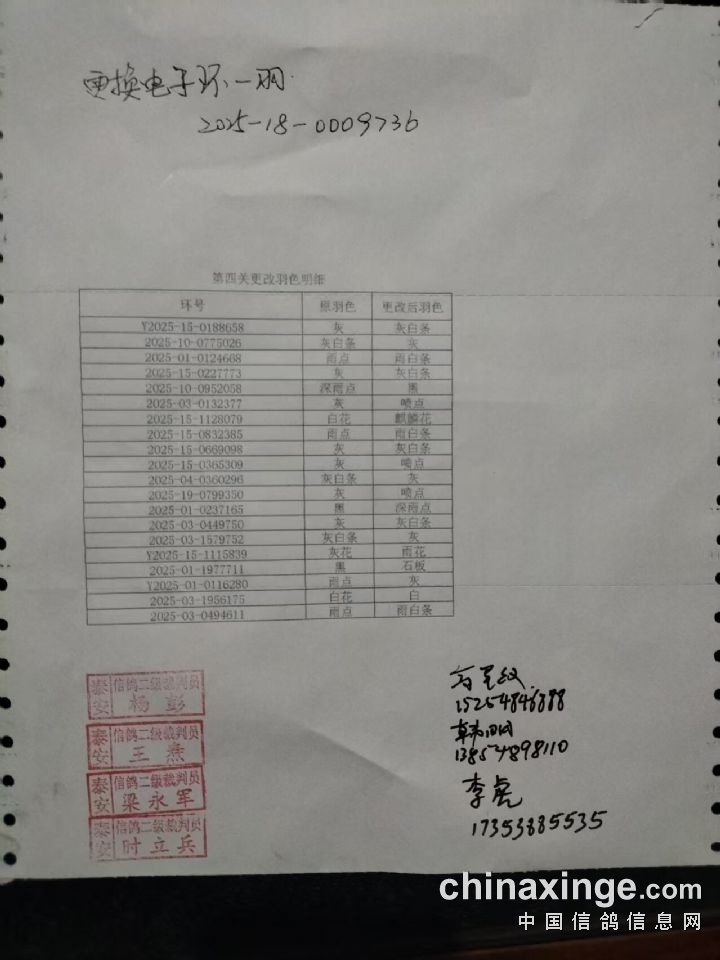 更换电子环一羽.
2025-18-0009736
第四关更改羽色明细
环号 原羽色 更改后羽色
Y2025-15-0188658 灰 灰白条
2025-10-0775026 灰白条 灰
2025-01-0124668 雨点 雨白条
2025-15-0227773 灰 灰白条
2025-10-0952058 深雨点 黑
2025-03-0132377 灰 喷点
2025-15-1128079 白花 麒麟花
2025-15-0832385 雨点 雨白条
2025-15-0669098 灰 灰白条
2025-15-0365309 灰 喷点
2025-04-0360296 灰白条 灰
2025-19-0799350 灰 喷点
2025-01-0237165 黑 深雨点
2025-03-0449750 灰 灰白条
2025-03-1579752 灰白条 灰
Y2025-15-1115839 灰花 雨花
2025-01-1977711 黑 石板
Y2025-01-0116280 雨点 灰
2025-03-1956175 白花 白
2025-03-0494611 雨点 雨白条
泰安 信鸽二级裁判员
杨彭
泰安 信鸽二级裁判员
王焘
泰安 信鸽二级裁判员
梁永军
泰安 信鸽二级裁判员
时立兵
15254846888
13854898110
李虎
17353885535
chinaxinge.com
中国信鸽信息网